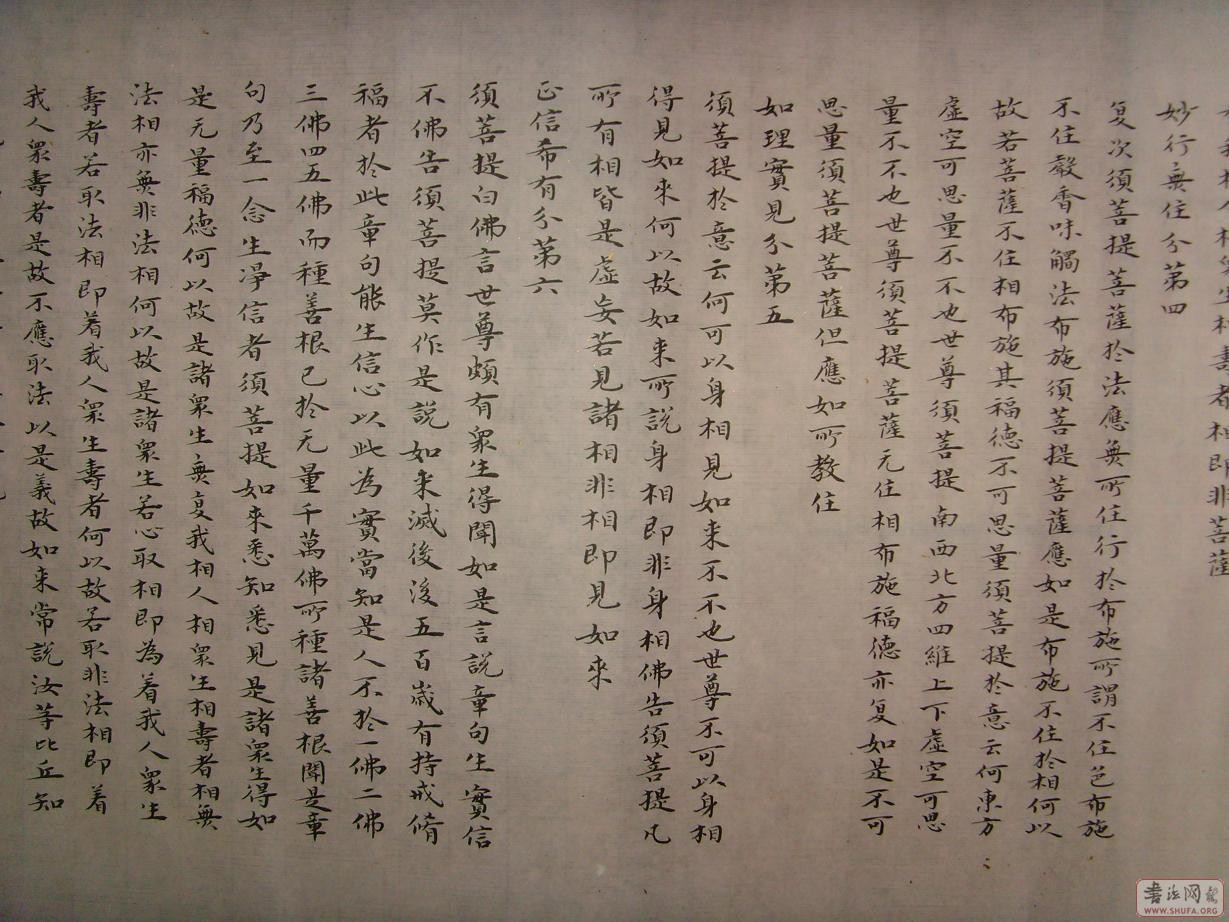 相即非菩薩
妙行無住分第四
复次須菩提菩薩於法應無所住行於布施所謂不住色布施
不住聲香味觸法布施須菩提菩薩應如是布施不住於相何以
故若菩薩不住相布施其福德不可思量須菩提於意云何東方
虛空可思量不不也世尊須菩提南西北方四維上下虛空可思
量不不也世尊須菩提菩薩无住相布施福德亦复如是不可
思量須菩提菩薩但應如所教住
如理實見分第五
須菩提於意云何可以身相見如来不不也世尊不可以身相
得見如来何以故如来所說身相即非身相佛告須菩提凡
所有相皆是虛妄若見諸相非相即見如来
正信希有分第六
須菩提白佛言世尊頗有衆生得聞如是言說章句生實信
不佛告須菩提莫作是說如来滅後後五百歲有持戒脩
福者於此章句能生信心以此為實當知是人不於一佛二佛
三佛四五佛而種善根已於无量千萬佛所種諸善根聞是章
句乃至一念生淨信者須菩提如来悉知悉見是諸衆生得如
是无量福德何以故是諸衆生無复我相人相衆生相壽者相無
法相亦無非法相何以故是諸衆生若心取相即為着我人衆生
壽者若取法相即着我人衆生壽者何以故若取非法相即着
我人衆壽者是故不應取法以是義故如来常說汝等比丘知
書法网
WWW.SHUFA.ORG